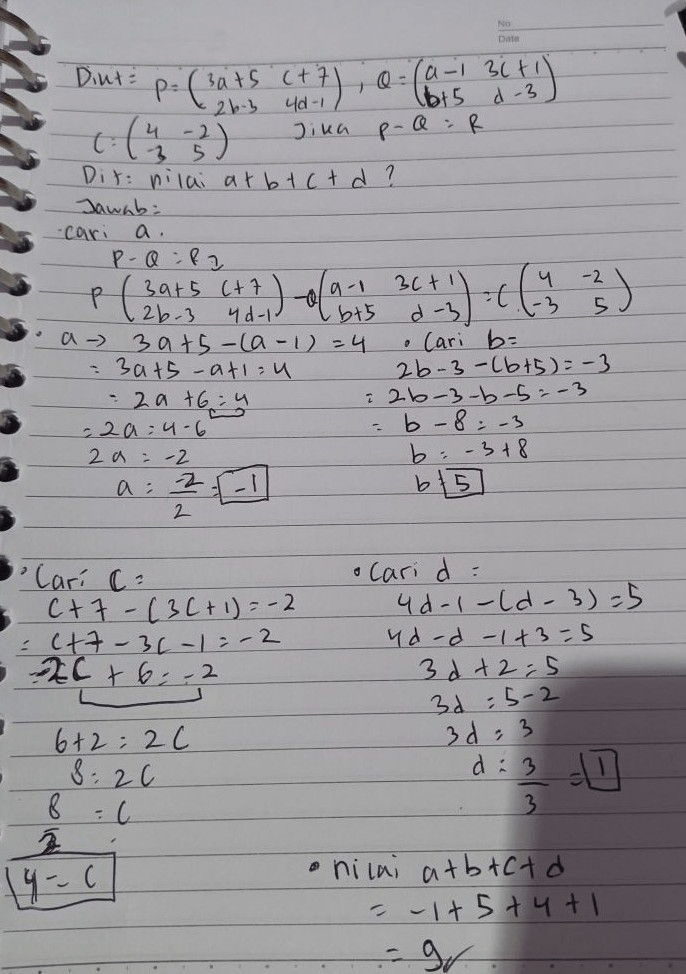 No
Date
Dint = P = (3a+5 c+7) , Q = (a-1 3c+1)
(2b-3 4d-1) (b+5 d-3)
C = (4 -2) Jika P-Q = R
(-3 5)
Dit = nilai a+b+c+d ?
Jawab =
· cari a.
P-Q = R
P (3a+5 c+7) - Q (a-1 3c+1) = C (4 -2)
(2b-3 4d-1) (b+5 d-3) (-3 5)
• a → 3a+5-(a-1) = 4
= 3a+5-a+1 = 4
= 2a+6 = 4
= 2a = 4-6
2a = -2
a = -2/2 = -1
• Cari b =
2b-3-(b+5) = -3
= 2b-3-b-5 = -3
= b-8 = -3
b = -3+8
b = 5
• Cari C =
C+7-(3C+1) = -2
= C+7-3C-1 = -2
= -2C+6 = -2
6+2 = 2C
8 = 2C
8/2 = C
4 = C
• Cari d =
4d-1-(d-3) = 5
4d-d-1+3 = 5
3d+2 = 5
3d = 5-2
3d = 3
d = 3/3 = 1
• nilai a+b+c+d
= -1+5+4+1
= 9✓